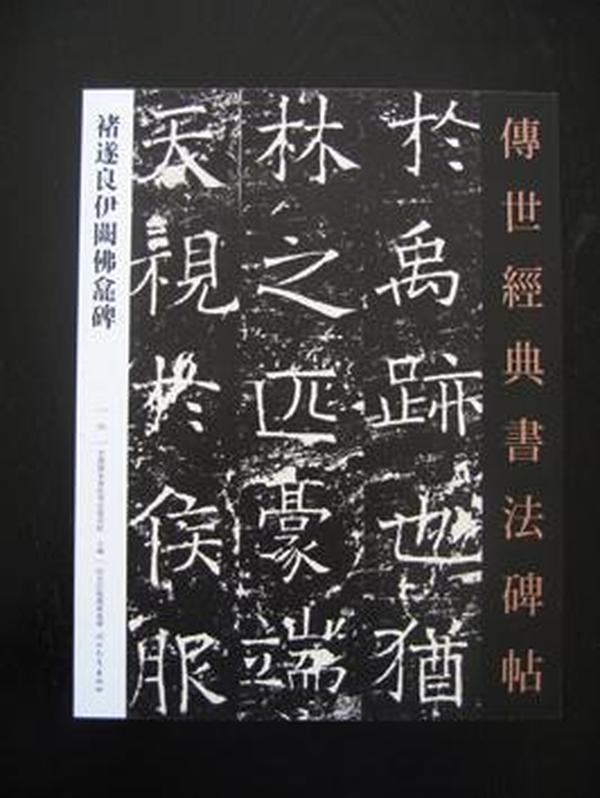 傳世經典書法碑帖
於禹跡也猶
林之匹豪端
天視於侯服
褚遂良伊闕佛龕碑